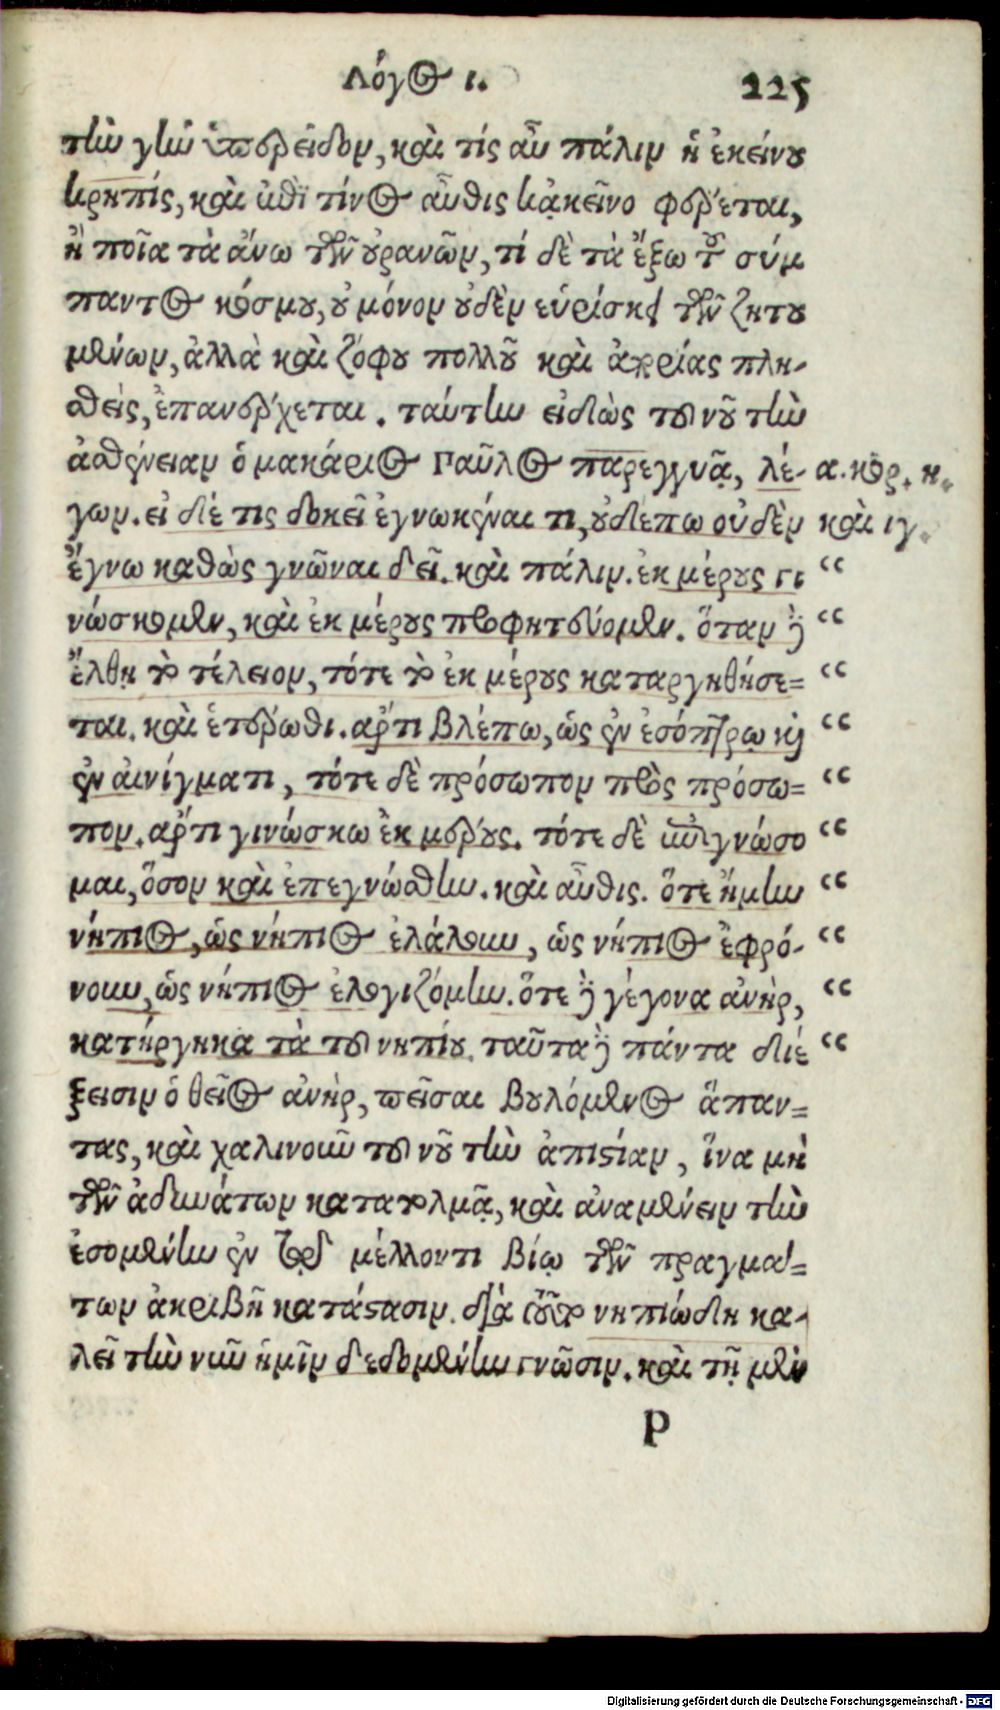 Λόγος ι. 225
τὴν γῆν ὑπερεῖδον, καὶ τίς αὖ πάλιν ἡ ἐκείνου
κρηπίς, καὶ ἐπὶ τίνος αὖθις κἀκεῖνο φέρεται,
ἢ ποῖα τὰ ἄνω τῶν οὐρανῶν, τί δὲ τὰ ἔξω τοῦ σύμ
παντος κόσμου, οὐ μόνον οὐδὲν εὑρίσκει τῶν ζητου
μένων, ἀλλὰ καὶ ζόφου πολλοῦ καὶ ἀπορίας πλη-
σθεὶς, ἐπανέρχεται. ταύτην εἰδὼς τοῦ νοῦ τὴν
ἀσθένειαν ὁ μακάριος Παῦλος παρεγγυᾷ, λέ- α. κορ. η.
γων. εἰ δέ τις δοκεῖ ἐγνωκέναι τι, οὐδέπω οὐδὲν καὶ ιγ.
ἔγνω καθὼς γνῶναι δεῖ. καὶ πάλιν. ἐκ μέρους γι “
νώσκομεν, καὶ ἐκ μέρους προφητεύομεν. ὅταν δὲ “
ἔλθῃ τὸ τέλειον, τότε τὸ ἐκ μέρους καταργηθήσε= “
ται. καὶ ἑτέρωθι. ἄρτι βλέπω, ὡς ἐν ἐσόπτρῳ καὶ “
ἐν αἰνίγματι, τότε δὲ πρόσωπον πρὸς πρόσω= “
πον. ἄρτι γινώσκω ἐκ μέρους. τότε δὲ ἐπιγνώσο “
μαι, ὅσον καὶ ἐπεγνώσθην. καὶ αὖθις. ὅτε ἤμην “
νήπιος, ὡς νήπιος ἐλάλουν, ὡς νήπιος ἐφρό- “
νουν, ὡς νήπιος ἐλογιζόμην. ὅτε δὲ γέγονα ἀνὴρ, “
κατήργηκα τὰ τοῦ νηπίου. ταῦτα δὲ πάντα διέ “
ξεισιν ὁ θεῖος ἀνὴρ, πεῖσαι βουλόμενος ἅπαν=
τας, καὶ χαλινοῦν τοῦ νοῦ τὴν ἀπιστίαν, ἵνα μὴ
τῶν ἀδυνάτων κατατολμᾷ, καὶ ἀναμένειν τὴν
ἐσομένην ἐν τῷ μέλλοντι βίῳ τῶν πραγμά=
των ἀκριβῆ κατάστασιν. διὰ τοῦτο νηπιώδη κα-
λεῖ τὴν νῦν ἡμῖν δεδομένην γνῶσιν. καὶ τῇ μὲν
P
Digitalisierung gefördert durch die Deutsche Forschungsgemeinschaft - DFG